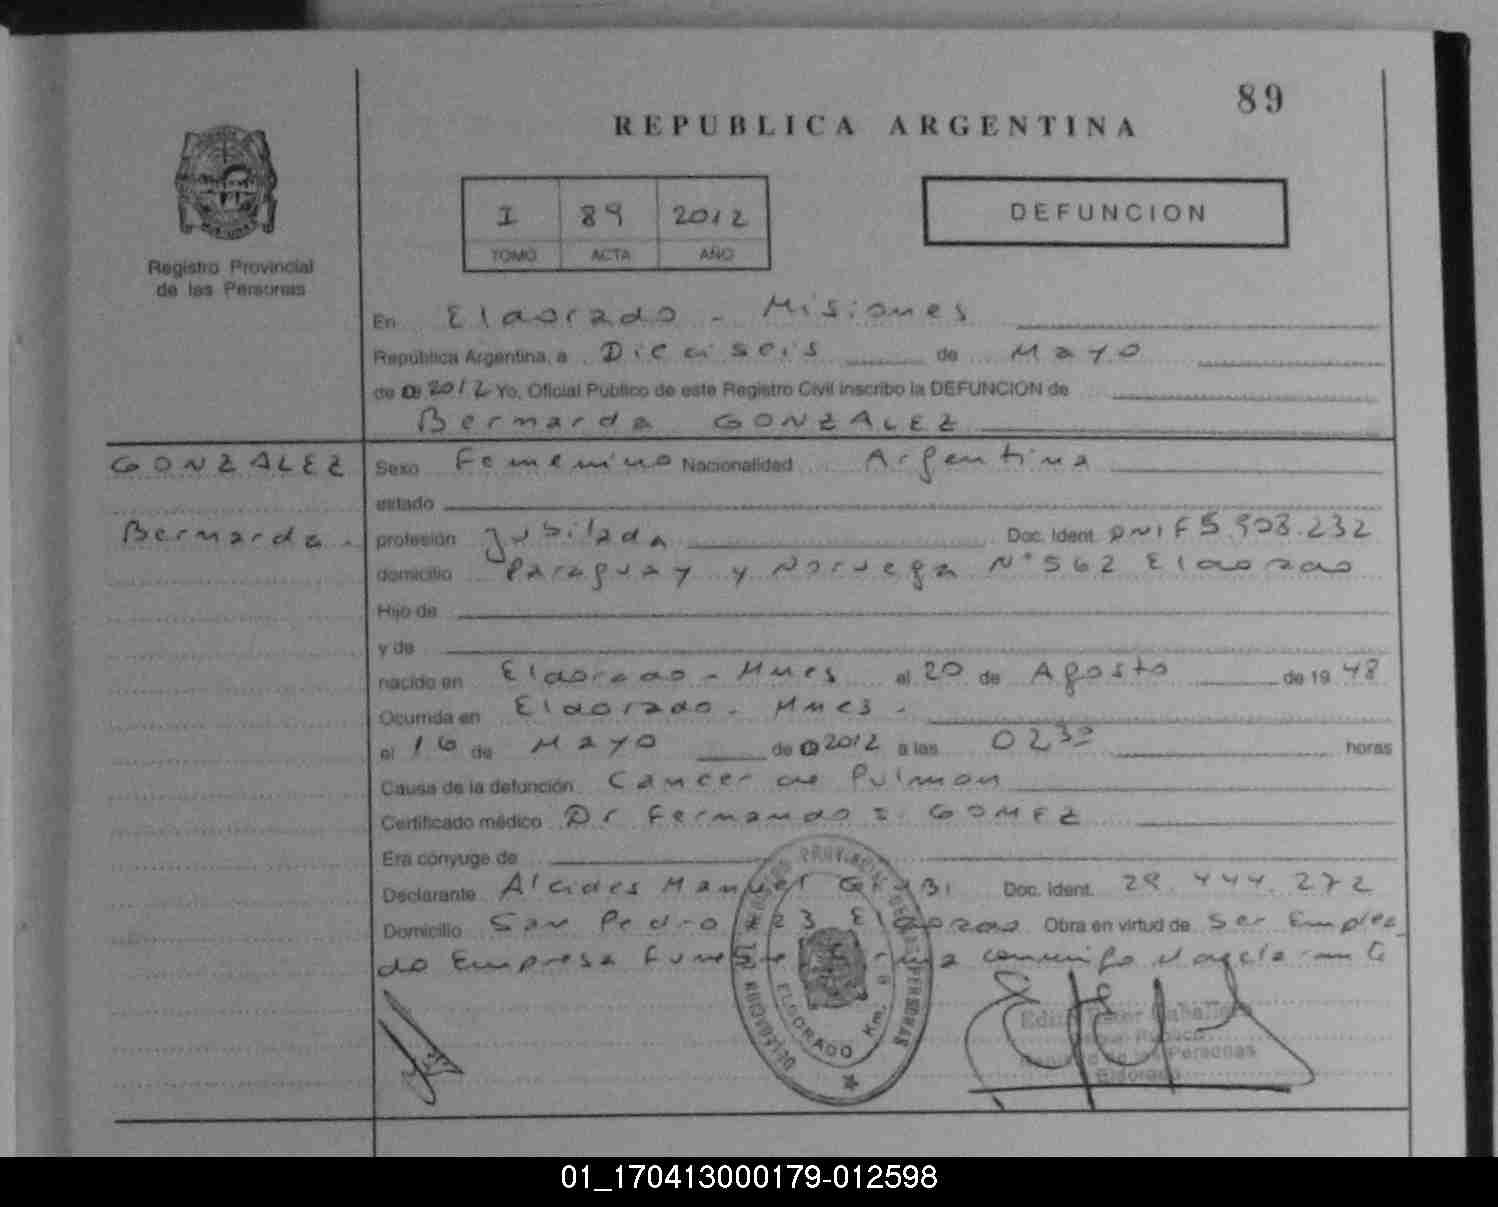 89
REPUBLICA ARGENTINA
I 89 2012
TOMO ACTA AÑO
DEFUNCION
Registro Provincial
de las Personas
En Eldorado - Misiones
República Argentina, a Dieciseis de Mayo
de 2012 Yo, Oficial Público de este Registro Civil inscribo la DEFUNCION de
Bernarda GONZALEZ
GONZALEZ
Bernarda.
Sexo Femenino Nacionalidad Argentina
estado
profesión Jubilada Doc. Ident. DNI F5.903.232
domicilio Paraguay y Noruega N° 562 Eldorado
Hijo de
y de
nacido en Eldorado - Mnes el 20 de Agosto de 19 48
Ocurrida en Eldorado - Mnes -
el 16 de Mayo de 2012 a las 0230 horas
Causa de la defunción Cancer de Pulmon
Certificado médico Dr Fernando GOMEZ
Era cónyuge de
Declarante Alcides Manuel Doc. Ident. 29.444.272
Domicilio San Pedro 23 Eldorado Obra en virtud de Ser Emplea
do Empresa conmigo el declarante
DELEGACION REGISTRO PROVINCIAL DE LAS PERSONAS
ELDORADO Km. 9
Caballero
Personas
Eldorado
01_170413000179-012598